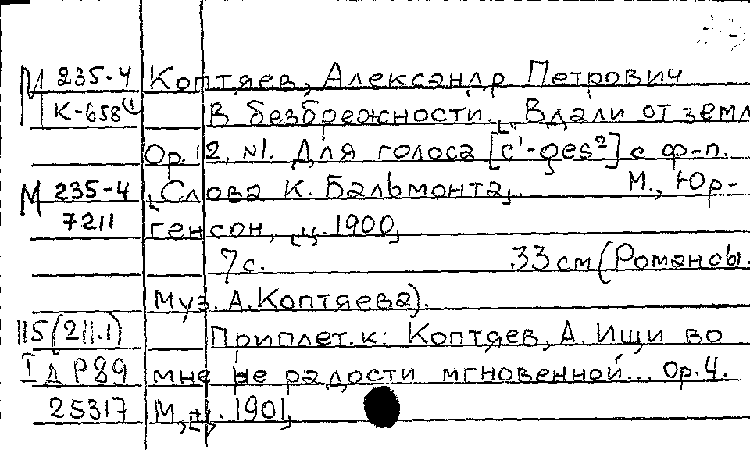 М 235-4 Коптяев, Александр Петрович
К-658(1) В безбрежности. [Вдали от земл
Ор. 12, №1. Для голоса [c¹-ges²] с ф-п.
М 235-4 [Слова К. Бальмонта]. М., Юр-
7211 генсон, [ц. 1900]
7с. 33см (Романсы.
Муз. А. Коптяева).
115(211.1) Приплет. к: Коптяев, А. Ищи во
I д Р89 мне не радости мгновенной... Ор.4.
25317 М., [ц. 1901]